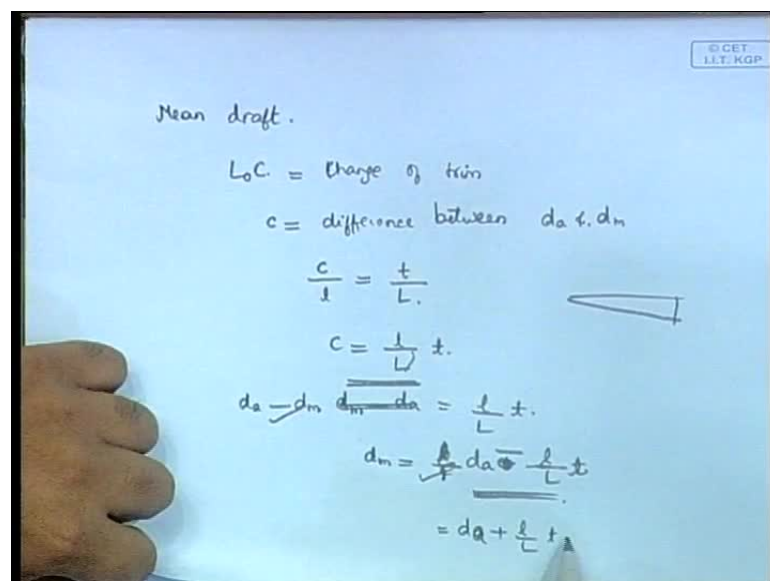 © CET
I.I.T. KGP
Mean draft.
L₀C. = Change of trim
c = difference between da & dm
c/l = t/L.
c = l/L t.
da - dm dm da = l/L t.
dm = da - l/L t
= da + l/L t